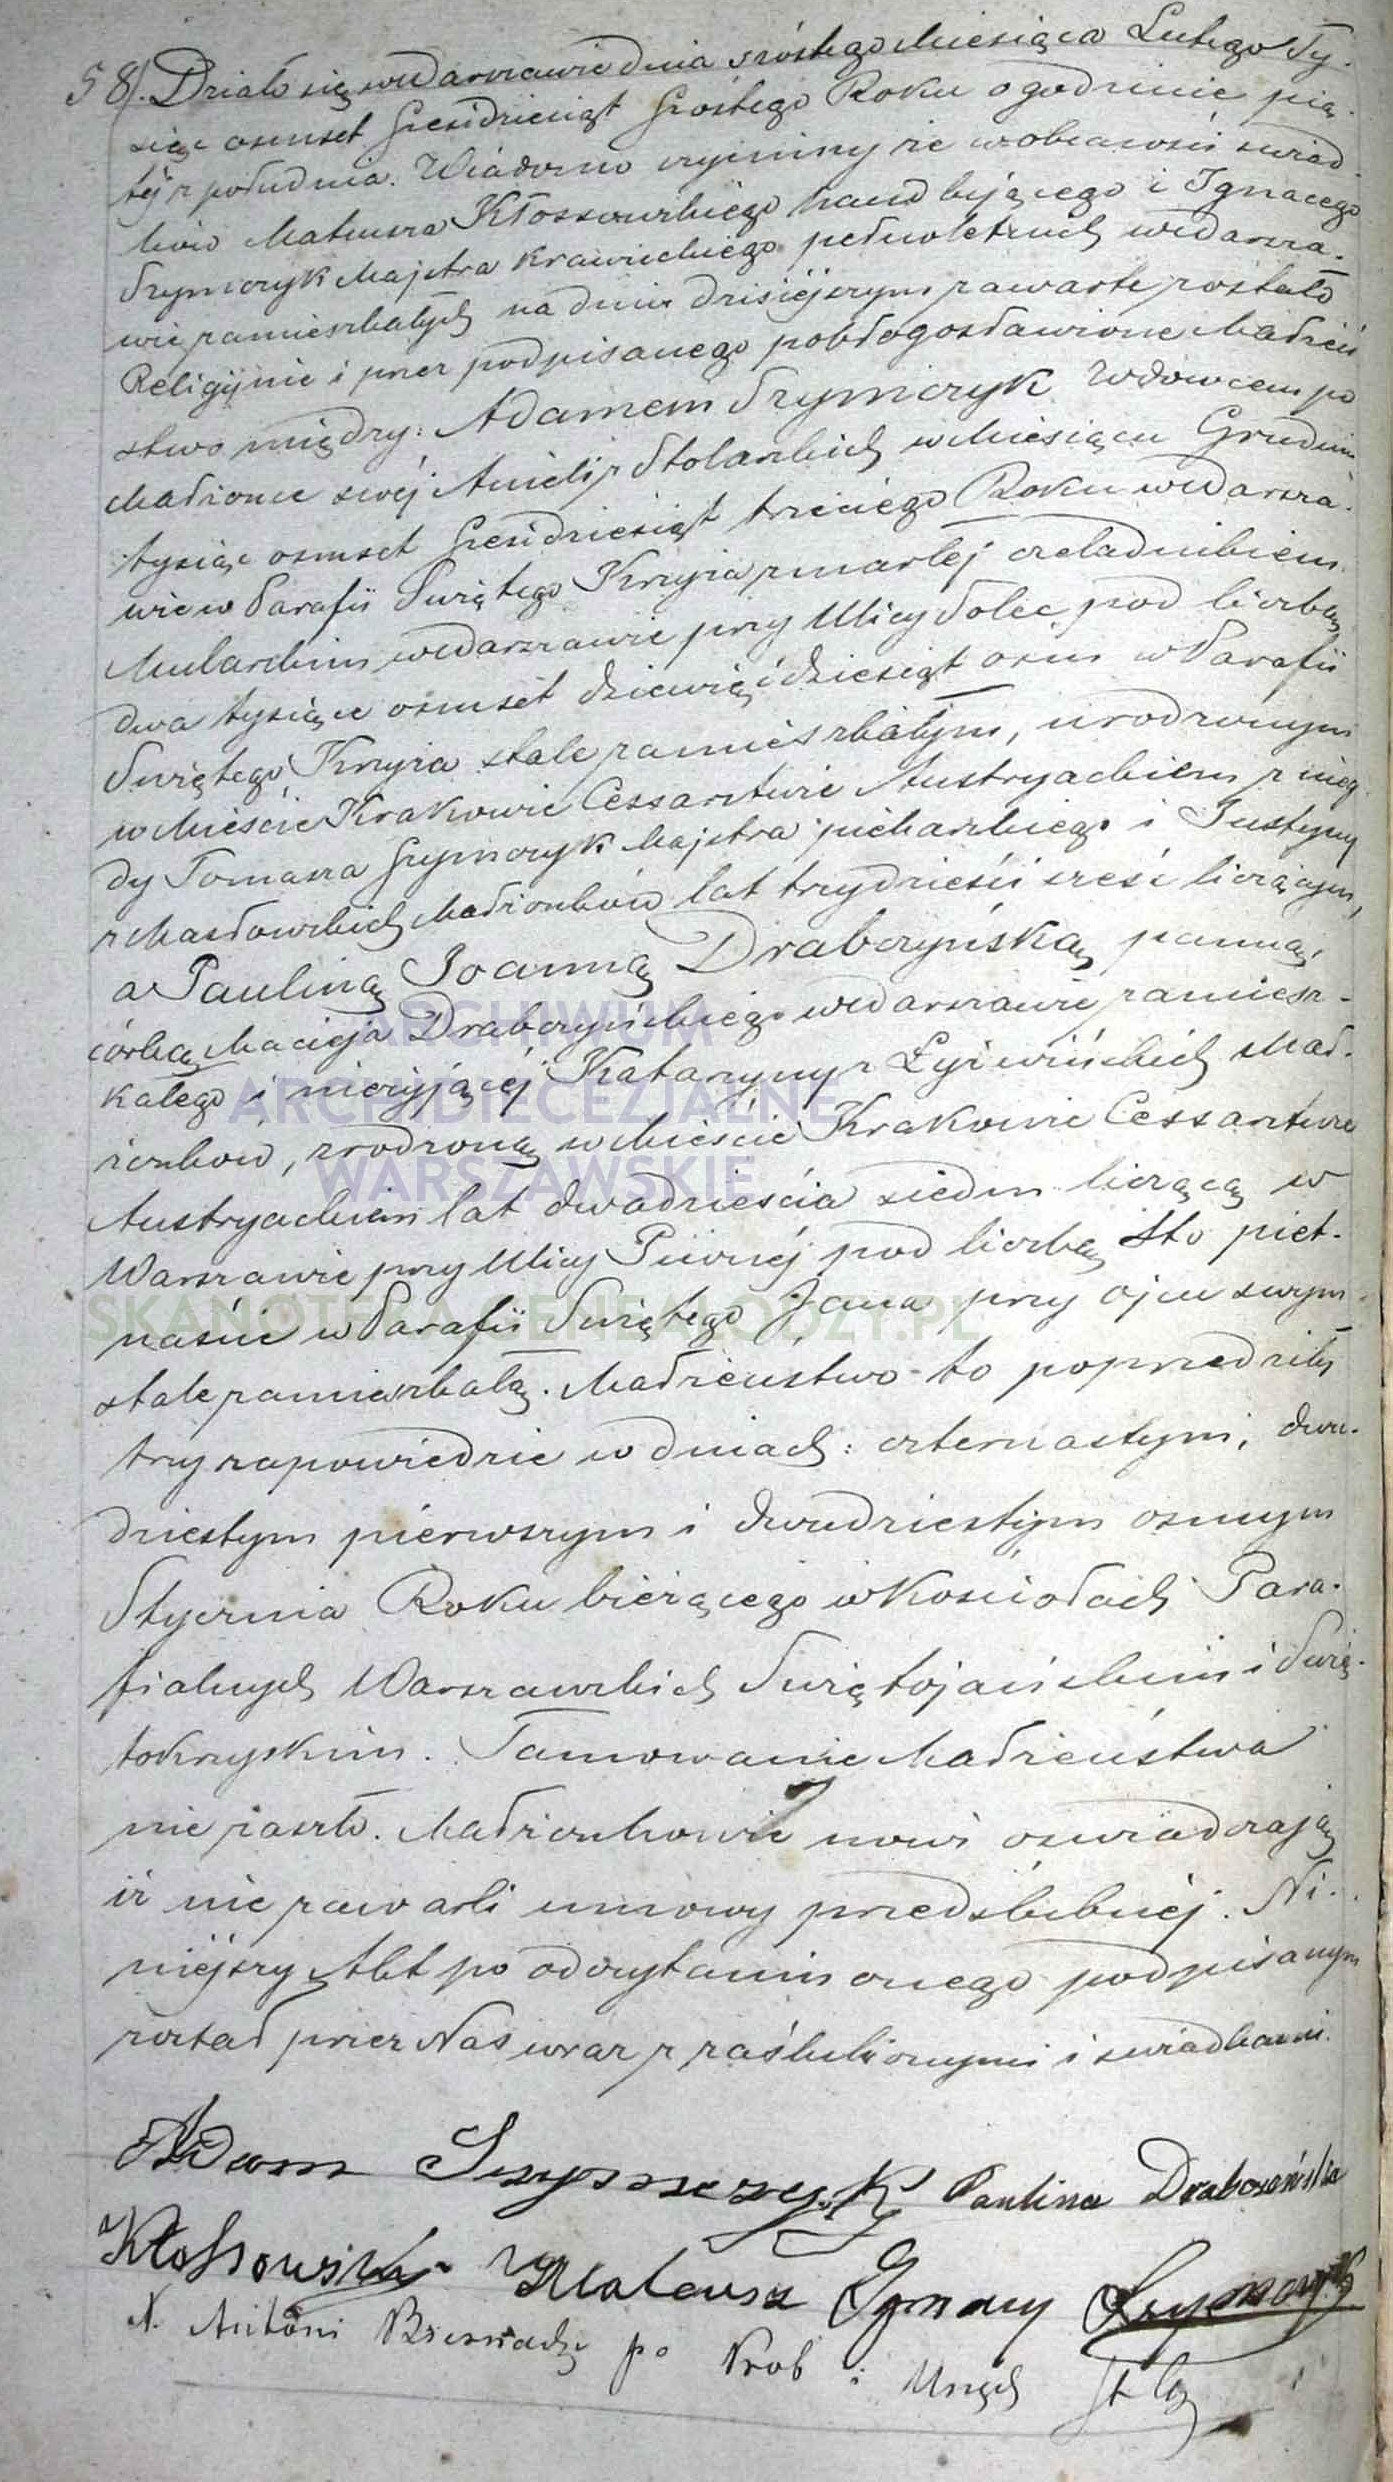 58). Działo się w Warszawie dnia szóstego Miesiąca Lutego Ty-
siąc osmset sześćdziesiąt szóstego Roku o godzinie pią-
téj z południa. Wiadomo czyniemy że w obecności świad-
ków Mateusza Kłossowskiego handlującego i Ignacego
Szymczyk Majstra krawieckiego pełnoletnich w Warsza-
wie zamieszkałych na dniu dzisiéjszym zawarte zostało
Religijnie i przez podpisanego pobłogosławione Małżeń-
stwo między: Adamem Szymczyk Wdowcem po
Małżonce swéj Anieli z Stolarskich w Miesiącu Grudniu
tysiąc osmset sześćdziesiąt trzeciego Roku w Warsza-
wie w Parafii Świętego Krzyża zmarłej czeladnikiem
Mularskim w Warszawie przy Ulicy Solec pod liczbą
dwa tysiące osmset dziewięćdziesiąt osm w Parafii
Świętego Krzyża stale zamieszkałym, urodzonym
w Mieście Krakowie Cessarstwie Austryackiem z nieg-
dy Tomasza Szymczyk Majstra piekarskiego i Justyny
z Masłowskich Małżonków lat trzydzieści sześć liczącym,
a Pauliną Joanną Drabczyńską panną,
córką Macieja Drabczyńskiego w Warszawie zamiesz-
kałego i nieżyjącéj Katarzyny z Łyżwińskich Mał-
żonków, zrodzoną w Mieście Krakowie Cessarstwie
Austryackiem lat dwadzieścia siedm liczącą w
Warszawie przy Ulicy Piwnéj pod liczbą Sto pięt-
naście w Parafii Świętego Jana przy ojcu swym
stale zamieszkałą. Małżeństwo to poprzedziły
trzy zapowiedzie w dniach: czternastym, dwu-
dziestym pierwszym i dwudziestym osmym
Stycznia Roku bieżącego w Kościołach Para-
fialnych Warszawskich Świętojańskim i Świę-
tokrzyskim. Tamowanie Małżeństwa
nie zaszło. Małżonkowie nowi oświadczają
iż nie zawarli umowy przedślubnéj. Ni-
niéjszy Akt po odczytaniu onego podpisanym
został przez Nas wraz z zaślubionymi i świadkami.
Adam Szymczyk Paulina Drabczyńska
Kłossowski Mateusz Ignacy Szymczyk
X. Antoni po Prob i Urzęd St Cy
ARCHIWUM
ARCHIDIECEZJALNE
WARSZAWSKIE
SKANOTEKA.GENEALODZY.PL